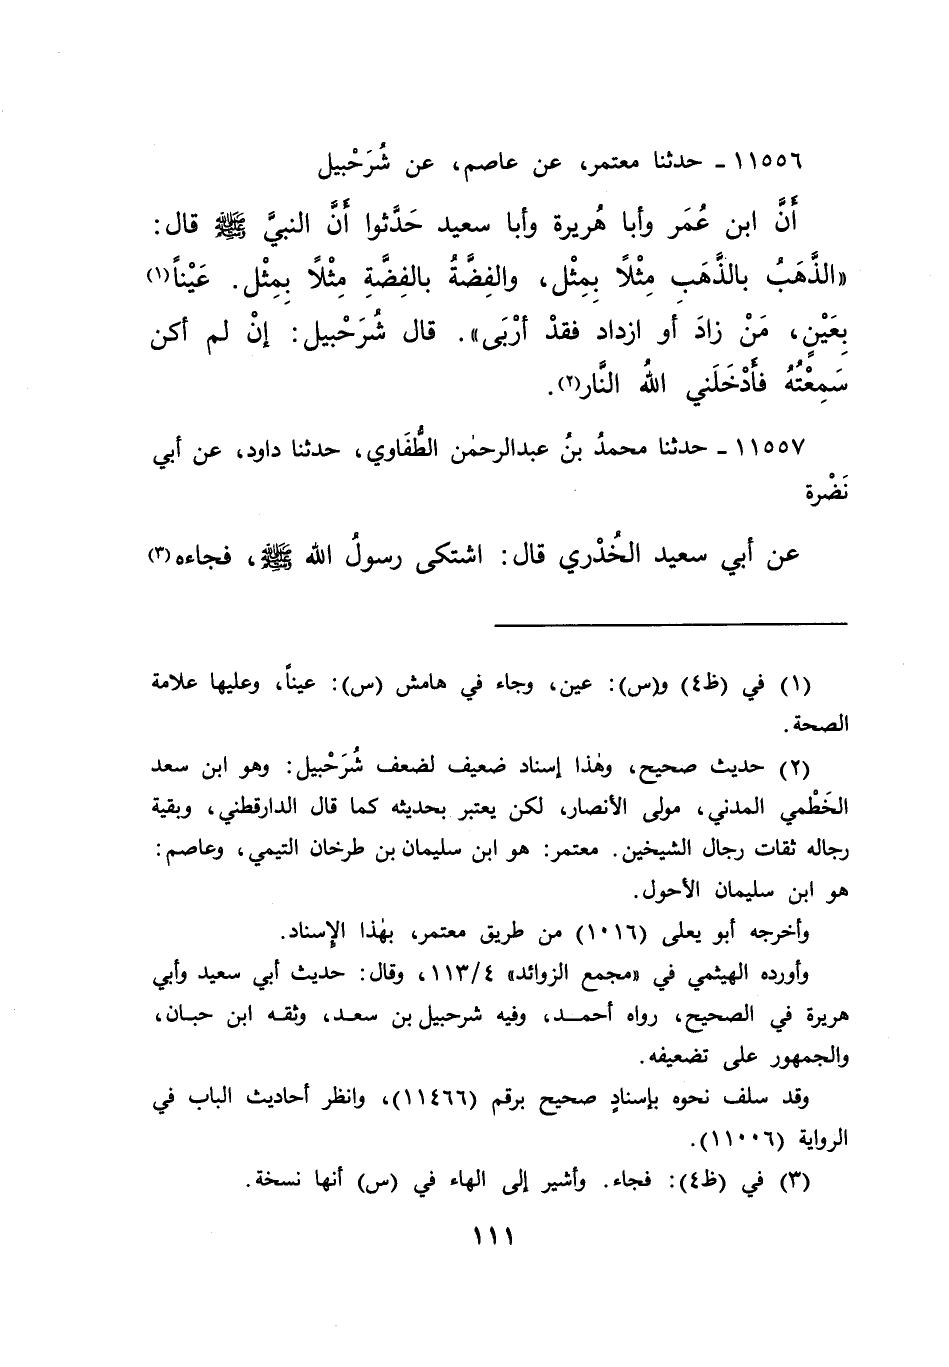 ١١٥٥٦ ـ حدثنا معتمر، عن عاصم، عن شُرَحْبيل
أَنَّ ابن عُمَر وأبا هُريرة وأبا سعيد حَدَّثوا أَنَّ النبيَّ ﷺ قال:
«الذَّهَبُ بالذَّهَبِ مِثْلاً بِمِثْل، والفِضَّةُ بالفِضَّةِ مِثْلاً بِمِثْل. عَيْناً(١)
بِعَيْنٍ، مَنْ زادَ أو ازداد فقدْ أرْبَى». قال شُرَحْبيل: إنْ لم أكن
سَمِعْتُهُ فأَدْخَلَني اللهُ النَّار(٢).
١١٥٥٧ ـ حدثنا محمدُ بنُ عبدالرحمٰن الطُّفَاوي، حدثنا داود، عن أبي
نَضْرة
عن أبي سعيد الخُدْري قال: اشتكى رسولُ الله ﷺ، فجاءه(٣)
(١) في (ظ٤) و(س): عين، وجاء في هامش (س): عيناً، وعليها علامة
الصحة.
(٢) حديث صحيح، وهٰذا إسناد ضعيف لضعف شُرَحْبيل: وهو ابن سعد
الخَطْمي المدني، مولى الأنصار، لكن يعتبر بحديثه كما قال الدارقطني، وبقية
رجاله ثقات رجال الشيخين. معتمر: هو ابن سليمان بن طرخان التيمي، وعاصم:
هو ابن سليمان الأحول.
وأخرجه أبو يعلى (١٠١٦) من طريق معتمر، بهٰذا الإسناد.
وأورده الهيثمي في «مجمع الزوائد» ١١٣/٤، وقال: حديث أبي سعيد وأبي
هريرة في الصحيح، رواه أحمـد، وفيه شرحبيل بن سعـد، وثقـه ابن حبـان،
والجمهور على تضعيفه.
وقد سلف نحوه بإسنادٍ صحيح برقم (١١٤٦٦)، وانظر أحاديث الباب في
الرواية (١١٠٠٦).
(٣) في (ظ٤): فجاء. وأشير إلى الهاء في (س) أنها نسخة.
١١١